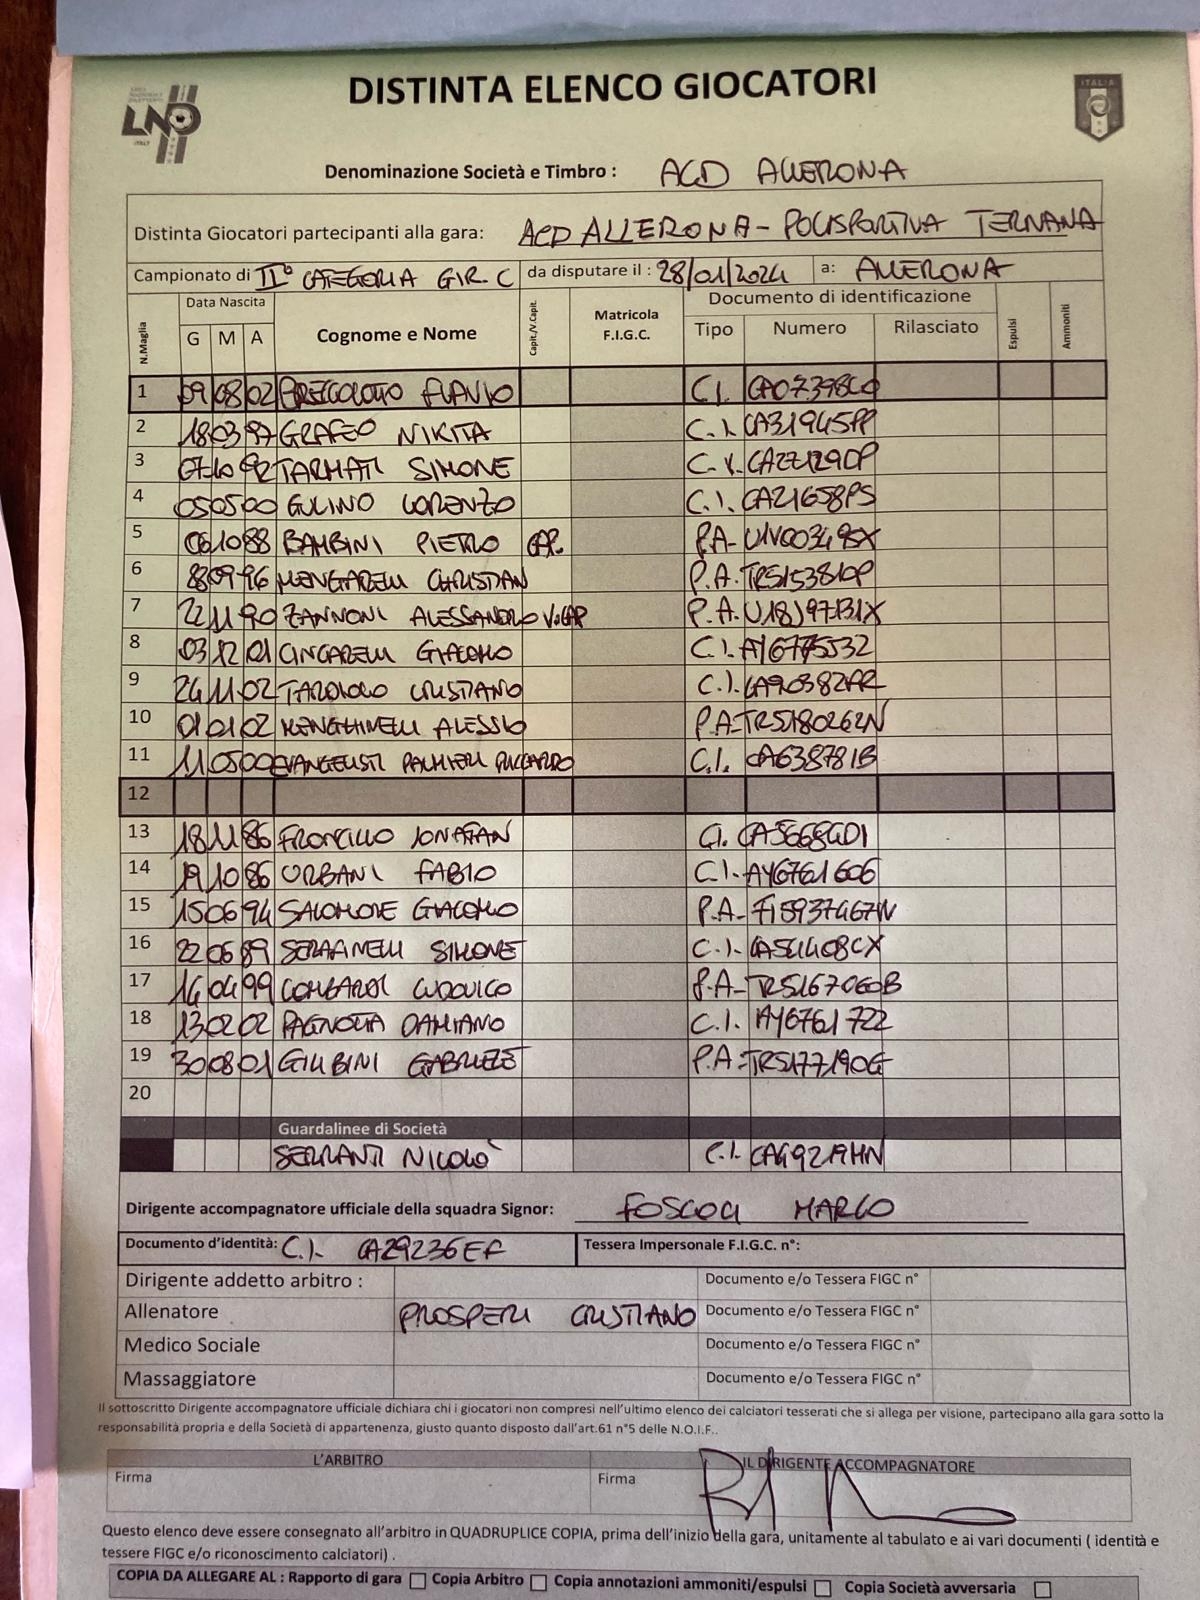 DISTINTA ELENCO GIOCATORI
LND
ITALIA
Denominazione Società e Timbro : ACD ALLERONA
Distinta Giocatori partecipanti alla gara: ACD ALLERONA - POLISPORTIVA TERNANA
Campionato di II° CATEGORIA GIR. C da disputare il : 28/01/2024 a: ALLERONA
N.Maglia Data Nascita G M A Cognome e Nome Capit./V.Capit. Matricola F.I.G.C. Documento di identificazione Tipo Numero Rilasciato Espulsi Ammoniti
1 09 08 02 FLAVIO C.I.
2 18 03 97 GRAFEO NIKITA C.I. CA31945PP
3 07 10 92 TARMATI SIMONE
4 05 05 00 GULINO LORENZO C.I. CA21658PS
5 06 10 88 BAMBINI PIETRO CAP. P.A-
6 09 96 MENGARELLI CHRISTIAN P.A. TR5153810P
7 22 11 90 ZANNONI ALESSANDRO V.CAP P.A.
8 03 12 01 CINGARELLI GIACOMO C.I.
9 24 11 02 CRISTIANO C.I. CA90382AR
10 01 01 02 MENGHINELLI ALESSIO P.A- TR5180262N
11 11 05 00 EVANGELISTI PALMIERI RICCARDO C.I. CA63878IB
12
13 18 11 86 FRONCILLO IONATAN C.I.
14 19 10 86 URBANI FABIO C.I. AY6761606
15 15 06 94 SALOMONE GIACOMO P.A-
16 22 06 89 SERAFINELLI SIMONE C.I.
17 14 04 99 LOMBARDI LUDOVICO P.A- TR5167060B
18 13 02 02 PAGNOTTA DAMIANO C.I. AY6761722
19 30 08 01 GIUBINI GABRIELE P.A- TR5177190G
20
Guardalinee di Società
SERRANTI NICOLÒ C.I.
Dirigente accompagnatore ufficiale della squadra Signor: FOSCOLI MARCO
Documento d'identità: C.I. CA29236EF Tessera Impersonale F.I.G.C. n°:
Dirigente addetto arbitro : Documento e/o Tessera FIGC n°
Allenatore PROSPERI CRISTIANO Documento e/o Tessera FIGC n°
Medico Sociale Documento e/o Tessera FIGC n°
Massaggiatore Documento e/o Tessera FIGC n°
Il sottoscritto Dirigente accompagnatore ufficiale dichiara chi i giocatori non compresi nell'ultimo elenco dei calciatori tesserati che si allega per visione, partecipano alla gara sotto la
responsabilità propria e della Società di appartenenza, giusto quanto disposto dall'art.61 n°5 delle N.O.I.F..
L'ARBITRO IL DIRIGENTE ACCOMPAGNATORE
Firma Firma
Questo elenco deve essere consegnato all'arbitro in QUADRUPLICE COPIA, prima dell'inizio della gara, unitamente al tabulato e ai vari documenti ( identità e
tessere FIGC e/o riconoscimento calciatori) .
COPIA DA ALLEGARE AL : Rapporto di gara Copia Arbitro Copia annotazioni ammoniti/espulsi Copia Società avversaria